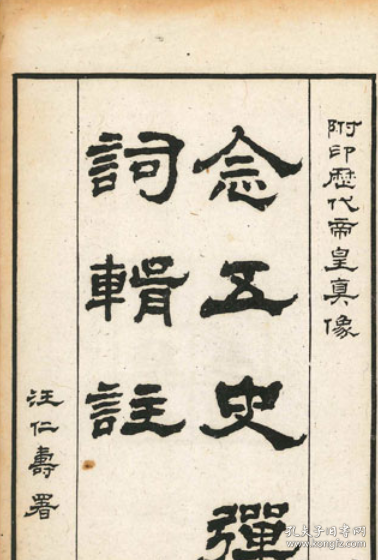 附印歷代帝皇真像
念五史彈
詞輯註
汪仁壽署
孔夫子旧书网
www.kongfz.com